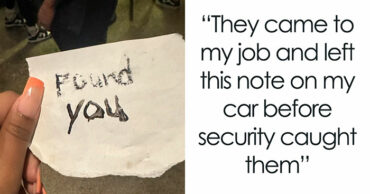 Found
you
“They came to
my job and left
this note on my
car before
security caught
them”